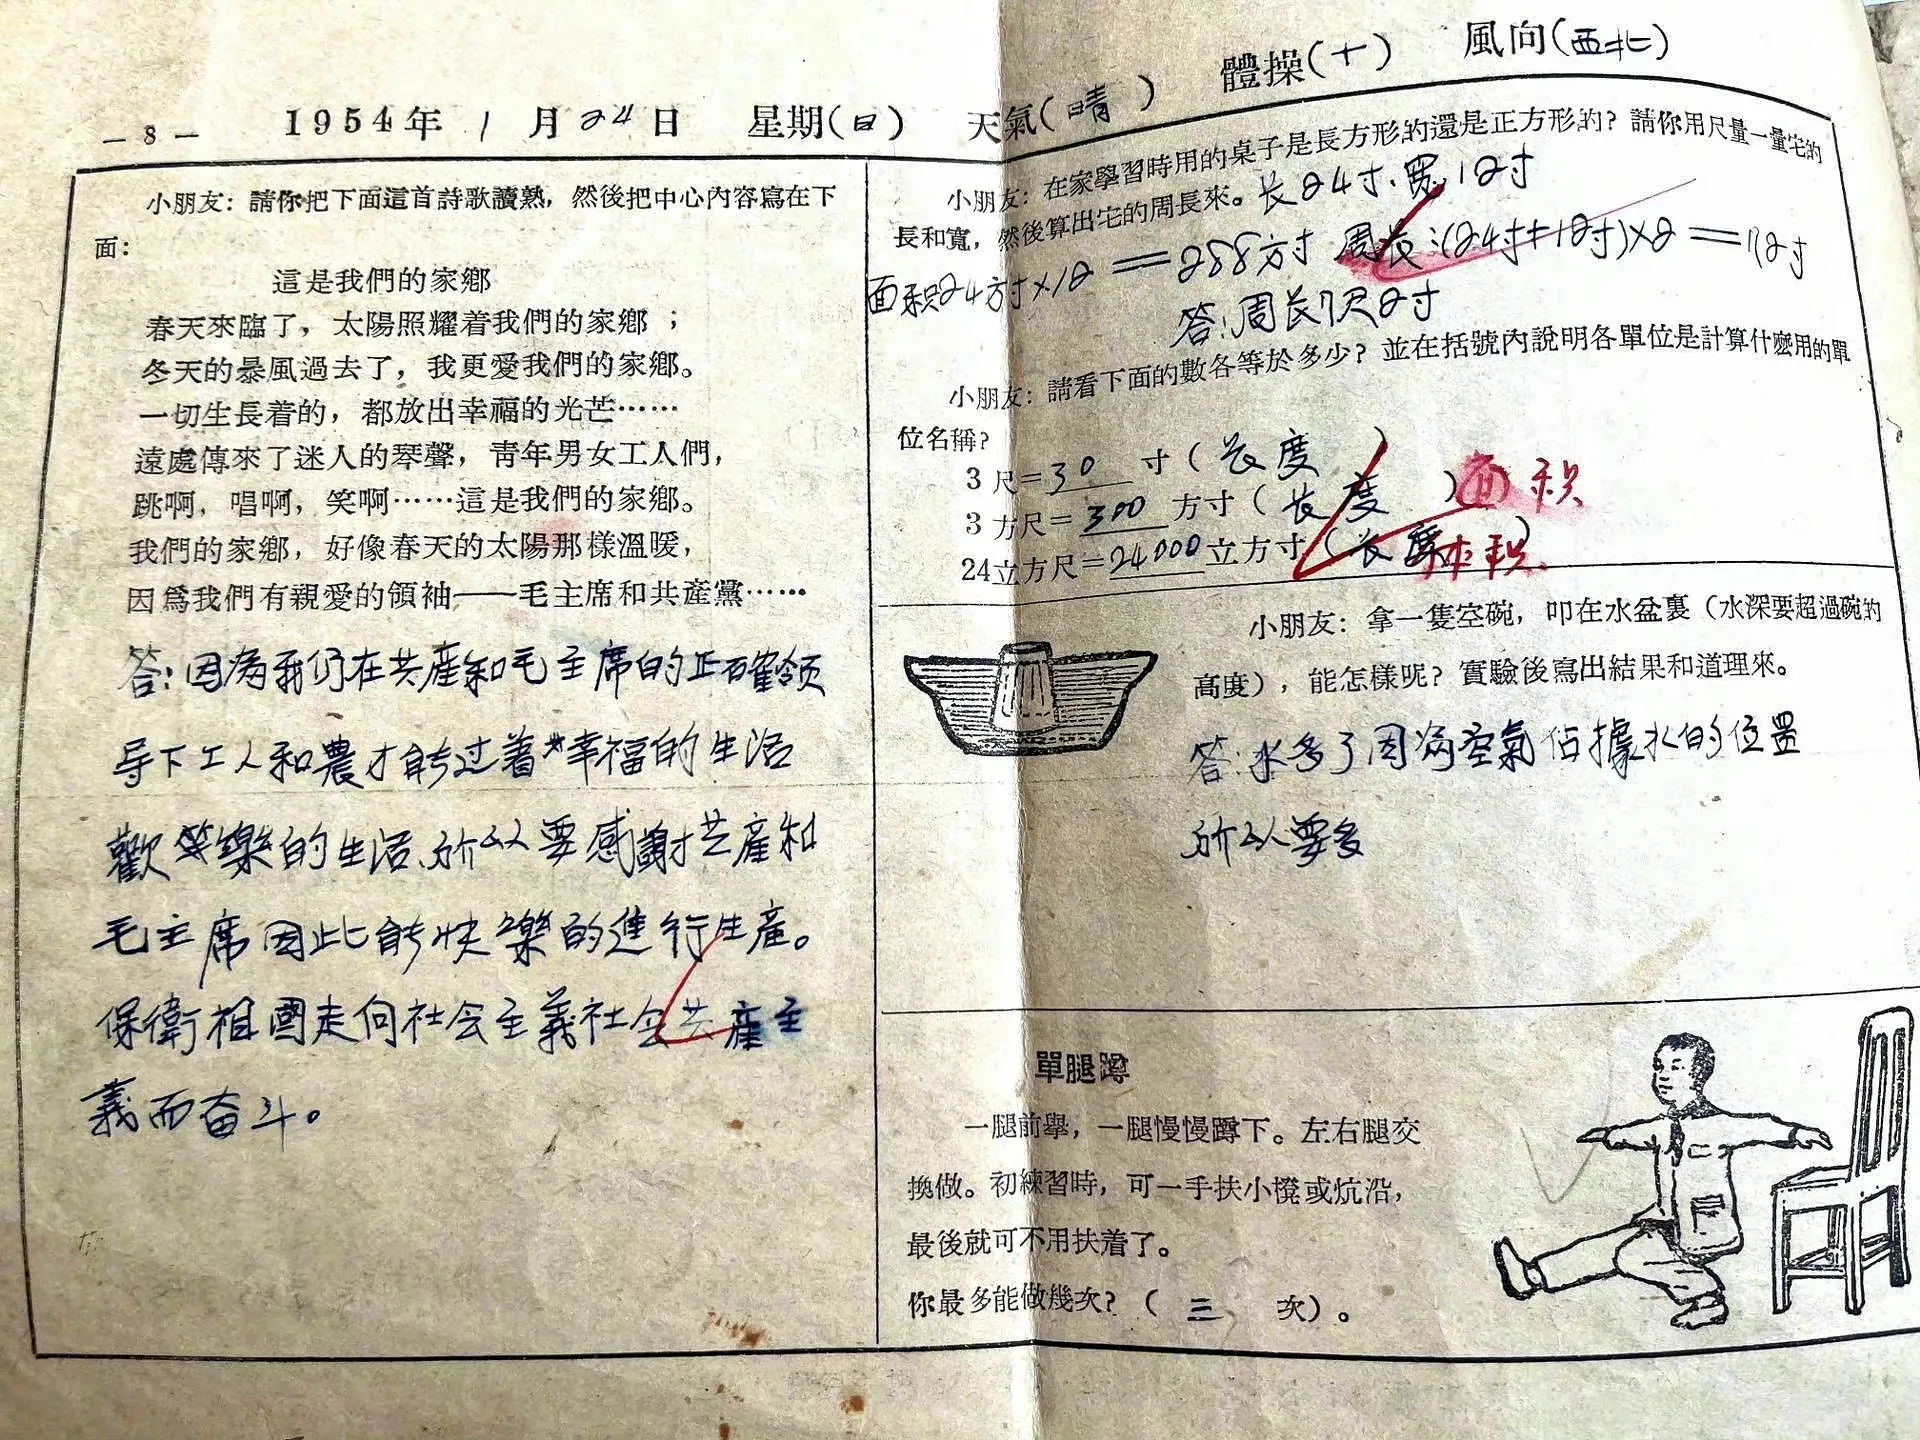 — 8 — 1954年 1 月 24 日 星期(日) 天氣(晴) 體操(十) 風向(西北)
小朋友：請你把下面這首詩歌讀熟，然後把中心內容寫在下
面：
這是我們的家鄉
春天來臨了，太陽照耀着我們的家鄉；
冬天的暴風過去了，我更愛我們的家鄉。
一切生長着的，都放出幸福的光芒……
遠處傳來了迷人的琴聲，青年男女工人們，
跳啊，唱啊，笑啊……這是我們的家鄉。
我們的家鄉，好像春天的太陽那樣溫暖，
因爲我們有親愛的領袖——毛主席和共產黨……
答：因为我们在共産和毛主席的正確领
导下工人和農才能过着幸福的生活
歡笑樂的生活、所以要感謝共産和
毛主席因此能快樂的進行生産。
保衛祖國走向社会主義社会共産主
義而奋斗。
小朋友：在家學習時用的桌子是長方形的還是正方形的？請你用尺量一量它的
長和寬，然後算出它的周長來。长24寸.宽12寸
面积24方寸×12＝288方寸 周长:(24寸+12寸)×2＝72寸
答:周长7尺2寸
小朋友：請看下面的數各等於多少？並在括號內說明各單位是計算什麽用的單
位名稱？
3 尺＝30 寸（长度）
3 方尺＝300 方寸（长度）面积
24立方尺＝24000立方寸（长度）体积
小朋友：拿一隻空碗，叩在水盆裏（水深要超過碗的
高度），能怎樣呢？實驗後寫出結果和道理來。
答:水多了因为空氣佔據水的位置
所以要多
單腿蹲
一腿前舉，一腿慢慢蹲下。左右腿交
換做。初練習時，可一手扶小櫈或炕沿，
最後就可不用扶着了。
你最多能做幾次？（ 三 次）。